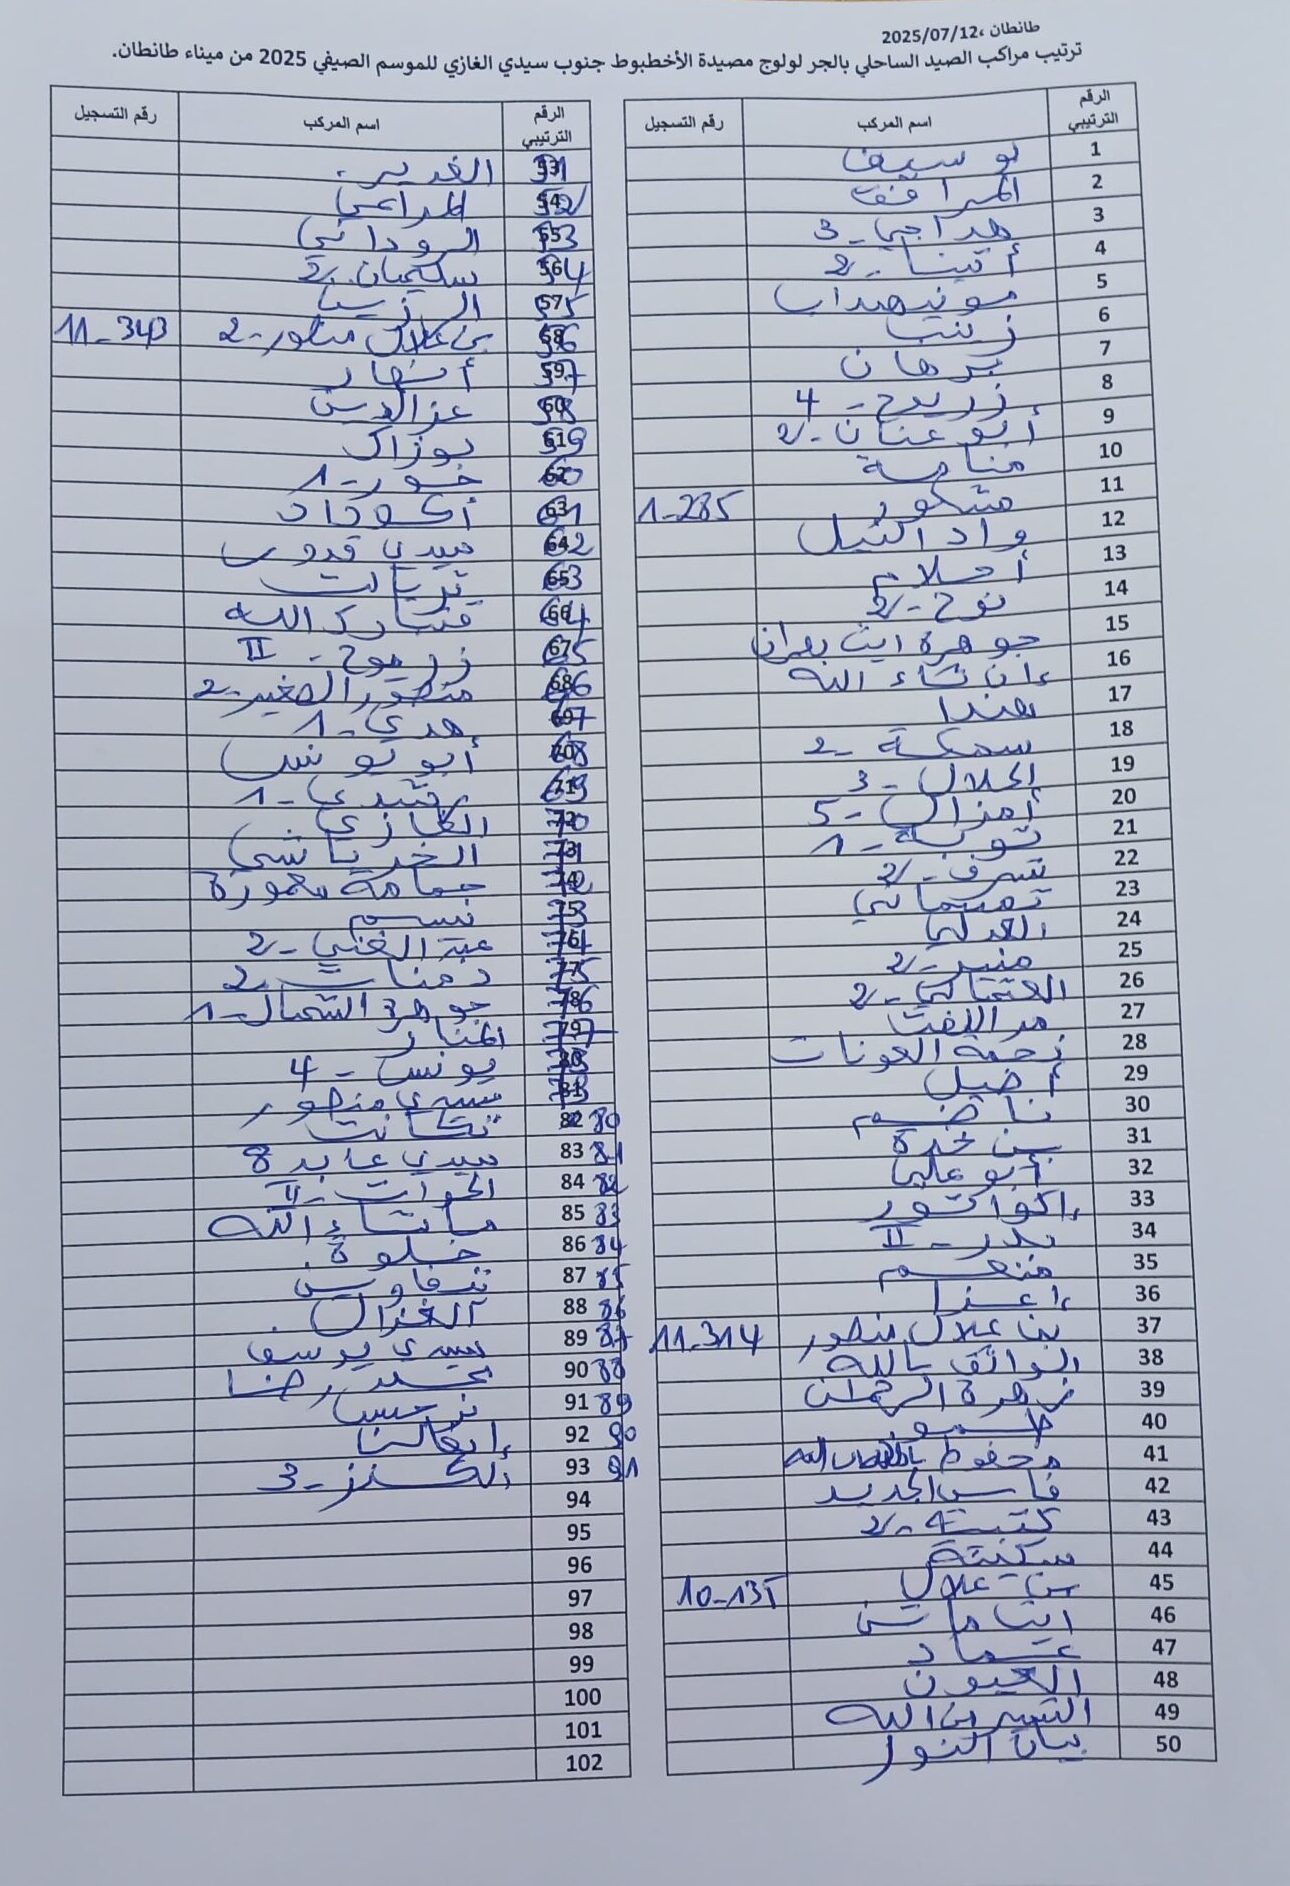 طانطان ،2025/07/12
ترتيب مراكب الصيد الساحلي بالجر لولوج مصيدة الأخطبوط جنوب سيدي الغازي للموسم الصيفي 2025 من ميناء طانطان.
الرقم الترتيبي اسم المركب رقم التسجيل
1 بوسيف
2 المرافق
3 هراجي -3
4 أتينا -2
5
6 زينب
7 برهان
8 زريوح - 4
9 أبو عنان -2
10
11 مشكور 1-285
12 واد النيل
13 أحلام
14 نوح -2
15 جوهرة ايت بعمران
16 إن شاء الله
17 هندا
18 سمكة -2
19 الجلال -3
20 أمزال -5
21 توبة -1
22 شرف -2
23 تمسماني
24 العدلي
25 منير -2
26 العثماني -2
27
28 نجمة العونات
29 أضيل
30 ناضم
31 بن خدة
32 أبو علي
33 إكواتور
34 بدر - II
35 منعم
36
37 بن علال منصور 11-314
38 الواثق بالله
39 زهرة الرحمان
40
41 محفوظ
42 فاس الجديد
43 كتيبة -2
44 سكينة
45 بن علال
46 ايت ماتن
47 عماد
48 العيون
49 التيسير من الله
50 بيان النور
الرقم الترتيبي اسم المركب رقم التسجيل
51 الغدير
52 المراعي
53 الروداني
54 سليمان -2
55
56 بن علال منصور -2 11-343
57 أنهار
58 عز الدين
59 بوزاك
60 خور -1
61
62 سيدي قدور
63
64 مبارك الله
65 زريوح - II
66 منصور الصغير -2
67 هدى -1
68 أبو يونس
69 رشدي -1
70 الغازي
71 الخرباشي
72 حمامة معمورة
73 نسيم
74 عبد الغني -2
75 دمنات -2
76 جوهرة الشمال -1
77 المنار
78 يونس - 4
79 سيدي منصور
82 80
83 81 سيدي عابد 8
84 82 الحوات - II
85 83 ما شاء الله
86 84 خلوة
87 85
88 86 الغزال
89 87 سيدي يوسف
90 88 محمد رضا
91 89 نرجس
92 90
93 91 الكنز -3
94
95
96
97
98
99
100
101
102